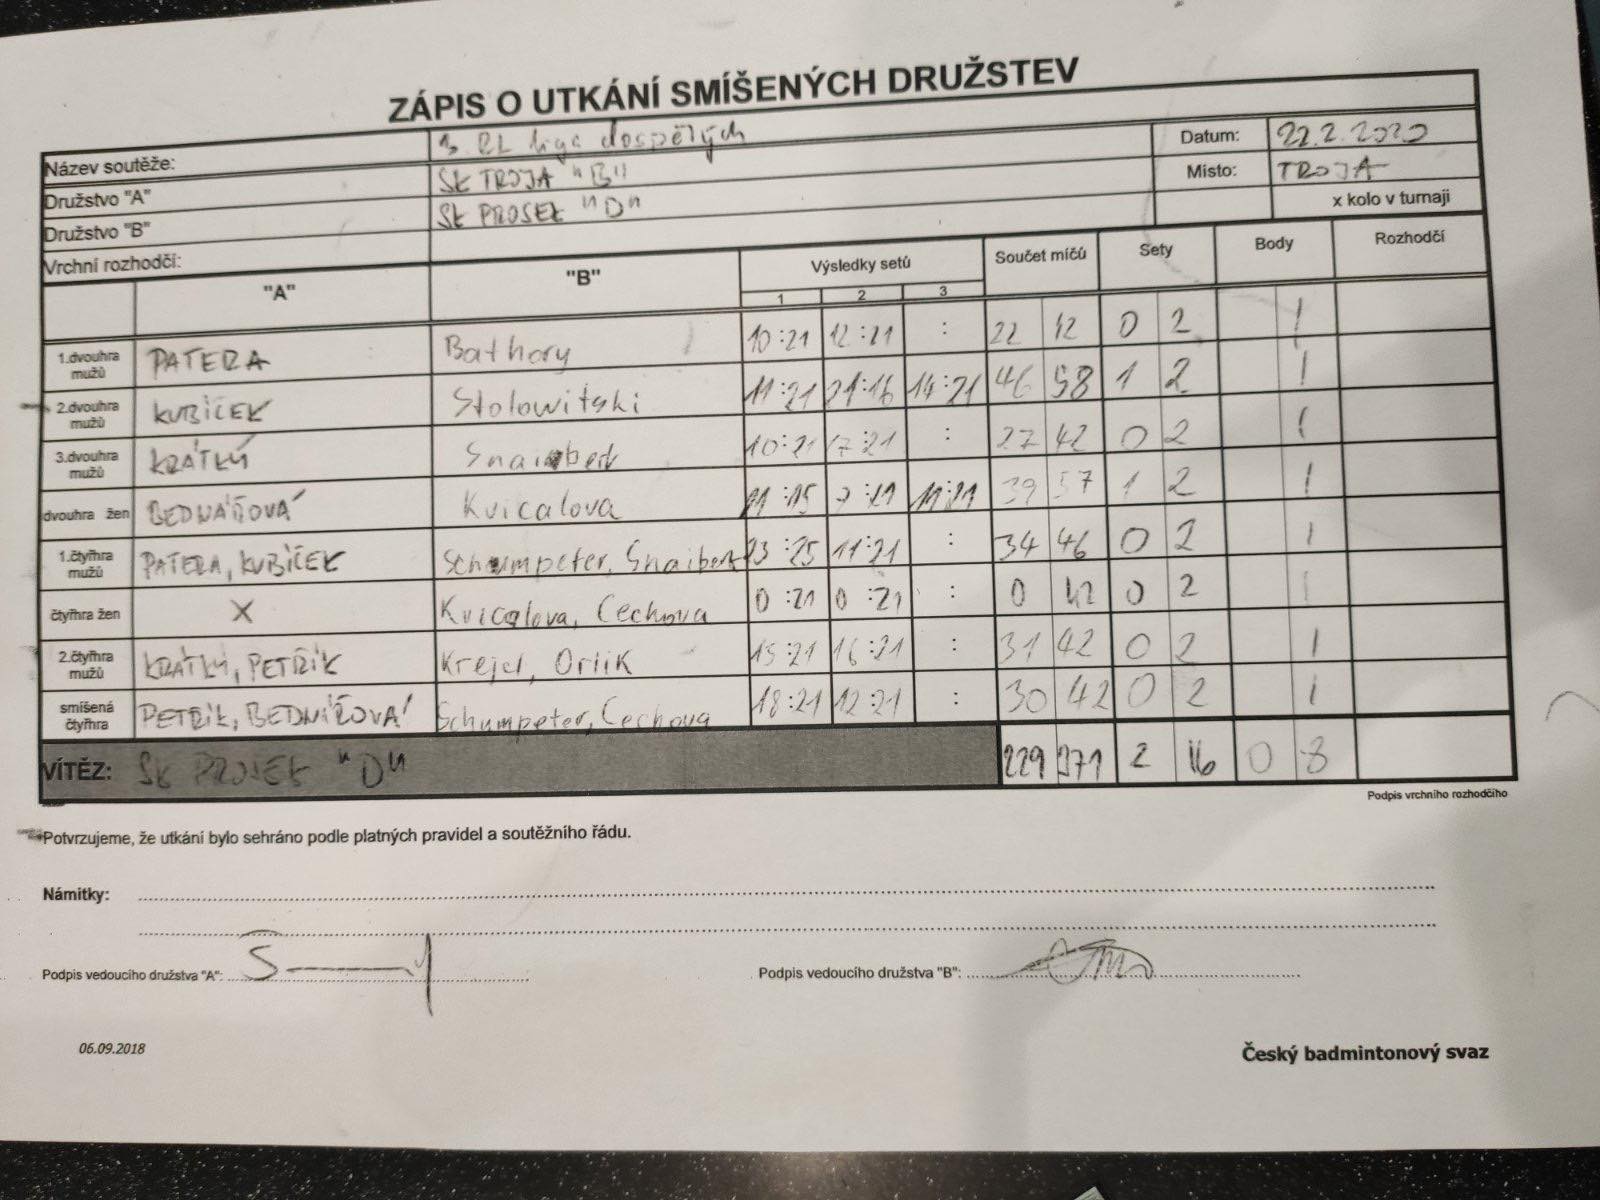 ZÁPIS O UTKÁNÍ SMÍŠENÝCH DRUŽSTEV
Název soutěže: 3. RL liga dospělých Datum: 22.2.2020
Družstvo "A" SK TROJA "B" Místo: TROJA
Družstvo "B" SK PROSEK "D" x kolo v turnaji
Vrchní rozhodčí:
"A" "B" Výsledky setů Součet míčů Sety Body Rozhodčí
1 2 3
1.dvouhra mužů PATERA Bathory 10:21 12:21 : 22 42 0 2 1
2.dvouhra mužů KUBÍČEK Stolowitski 11:21 21:16 14:21 46 58 1 2 1
3.dvouhra mužů KRÁTKÝ Snaibert 10:21 17:21 : 27 42 0 2 1
dvouhra žen BEDNÁŘOVÁ Kvicalova 21:15 7:21 11:21 39 57 1 2 1
1.čtyřhra mužů PATERA, KUBÍČEK Schumpeter, Snaibert 23:25 11:21 : 34 46 0 2 1
čtyřhra žen X Kvicalova, Cechova 0:21 0:21 : 0 42 0 2 1
2.čtyřhra mužů KRÁTKÝ, PETŘÍK Krejcl, Orlik 15:21 16:21 : 31 42 0 2 1
smíšená čtyřhra PETŘÍK, BEDNÁŘOVÁ Schumpeter, Cechova 18:21 12:21 : 30 42 0 2 1
VÍTĚZ: SK PROSEK "D" 229 371 2 16 0 8
Podpis vrchního rozhodčího
Potvrzujeme, že utkání bylo sehráno podle platných pravidel a soutěžního řádu.
Námitky:
Podpis vedoucího družstva "A": Podpis vedoucího družstva "B":
06.09.2018
Český badmintonový svaz